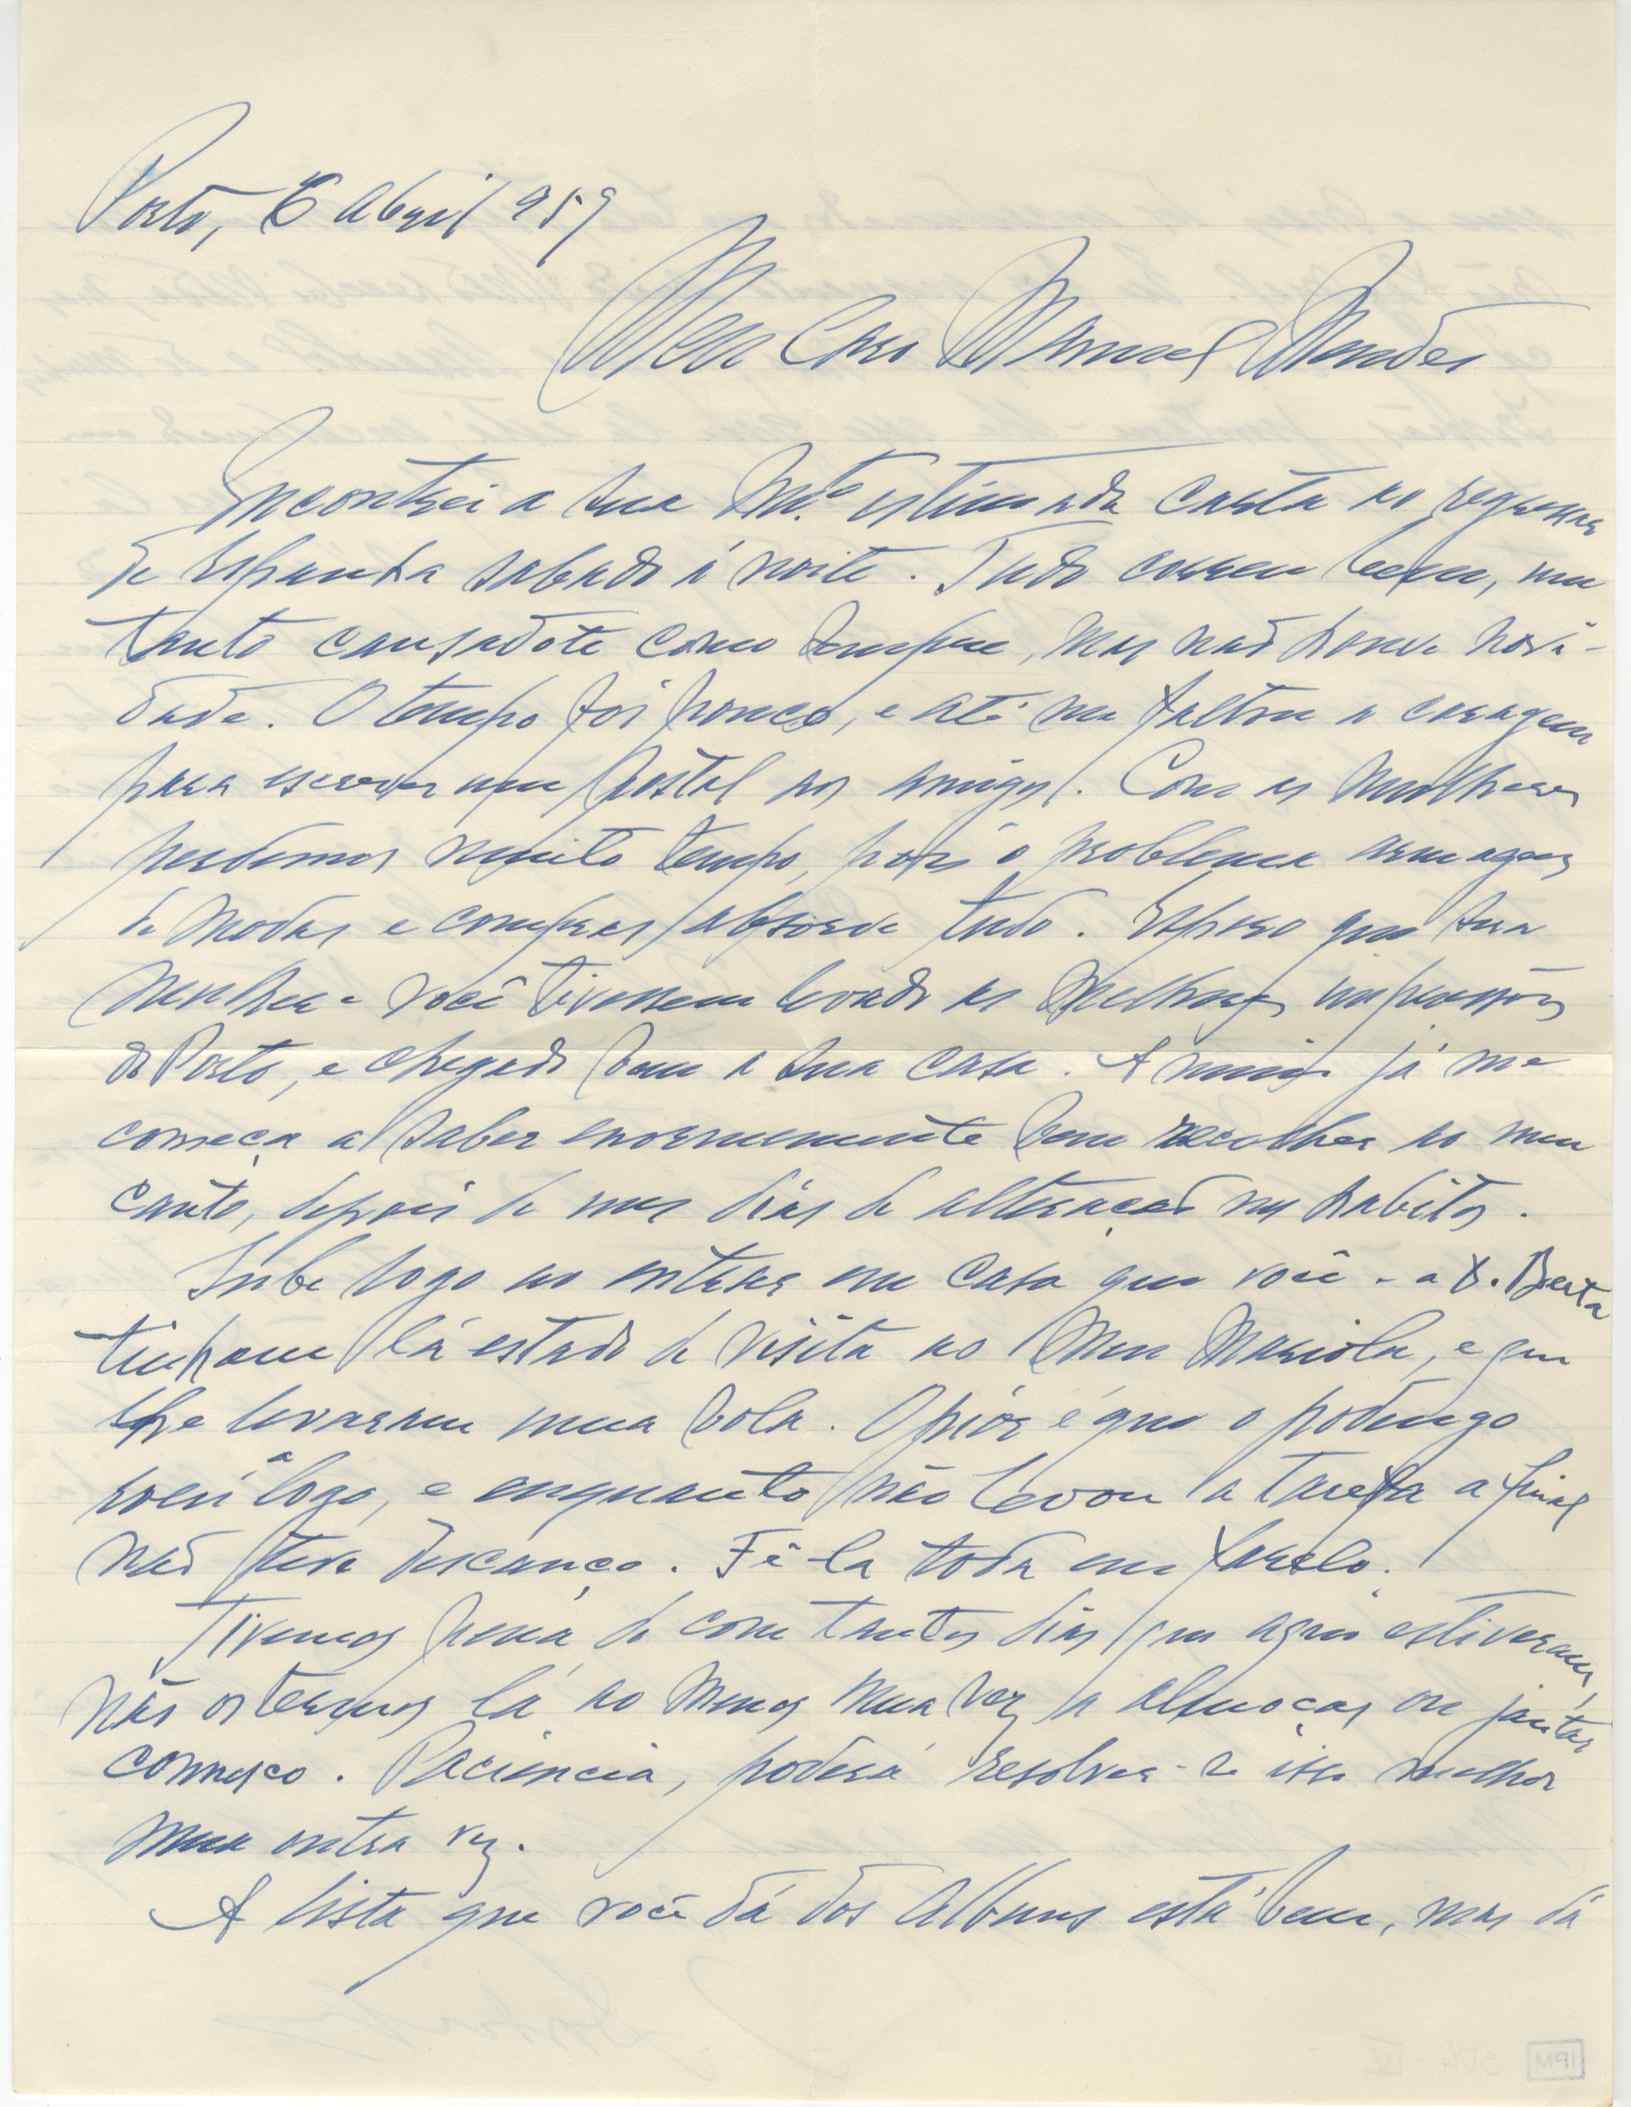 Porto, 6 Abril 959
Meu Caro Manuel Mendes
Encontrei a sua m.to estimada carta ao regressar
de Espanha sabado á noite. Tudo correu bem, um
tanto cansadote como sempre, mas não houve novi-
dade. O tempo foi pouco, e até me faltou a coragem
para escrever um postal aos amigos. Com as mulheres
perdemos muito tempo, pois o problema armazens
de modas e compras absorve tudo. Espero que sua
mulher e você tivessem levado as melhores impressões
do Porto, e chegado bem a sua casa. A mim já me
começa a saber enormemente bem recolher ao meu
canto, depois de uns dias de alteração nos habitos.
Soube logo ao entrar em casa que você e a D. Berta
tinham lá estado de visita ao meu Mariola, e que
lhe levaram uma bola. O peor é que o podengo
roeu-a logo, e enquanto não levou a tarefa a final
não teve descanço. Fê-la toda em farelo.
Tivemos pena de com tantos dias que aqui estiveram,
não os termos lá ao menos uma vez a almoçar ou jantar
comnosco. Paciencia, poderá resolver-se isso melhor
numa outra vez.
A lista que você dá dos albuns está bem, mas dá
IPM